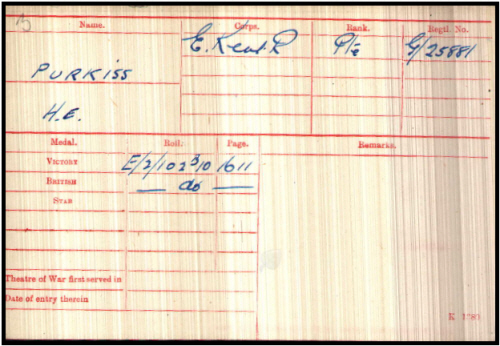 Name. Corps. Rank. Regtl. No.
E. Kent. R Pte G/25881
PURKISS
H.E.
Medal. Roll. Page. Remarks.
VICTORY E/2/102 B10 1611
BRITISH — do —
STAR
Theatre of War first served in
Date of entry therein